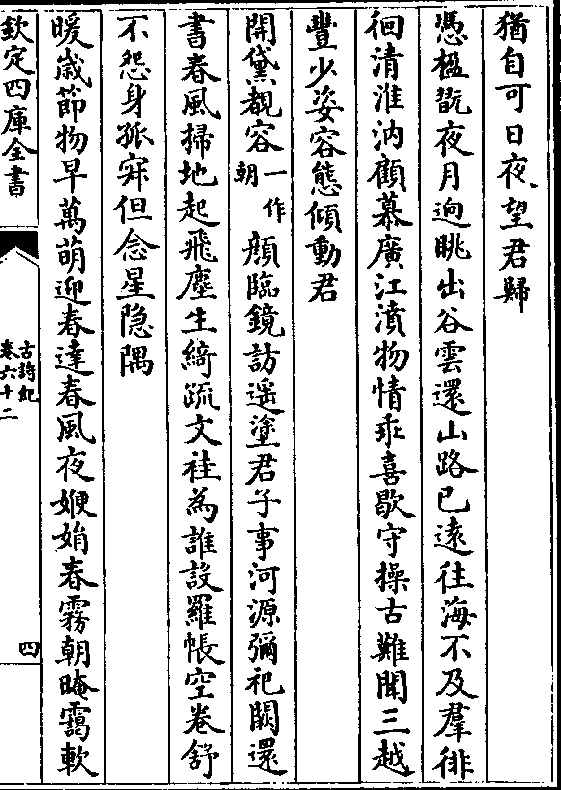 猶自可日夜望君歸
憑楹翫夜月迥眺出谷雲還山路已遠往海不及羣徘
徊清淮汭顧慕廣江濆物情乖喜歇守操古難聞三越
豐少姿容態傾動君
開黛覩容一作朝顔臨鏡訪遥塗君子事河源彌祀闕還
書春風掃地起飛塵生綺疏文袿為誰設羅帳空卷舒
不怨身孤寂但念星隐隅
暖歲節物早萬萌迎春達春風夜㛹娟春霧朝晻靄軟
欽定四庫全書
古詩紀
卷六十二
四